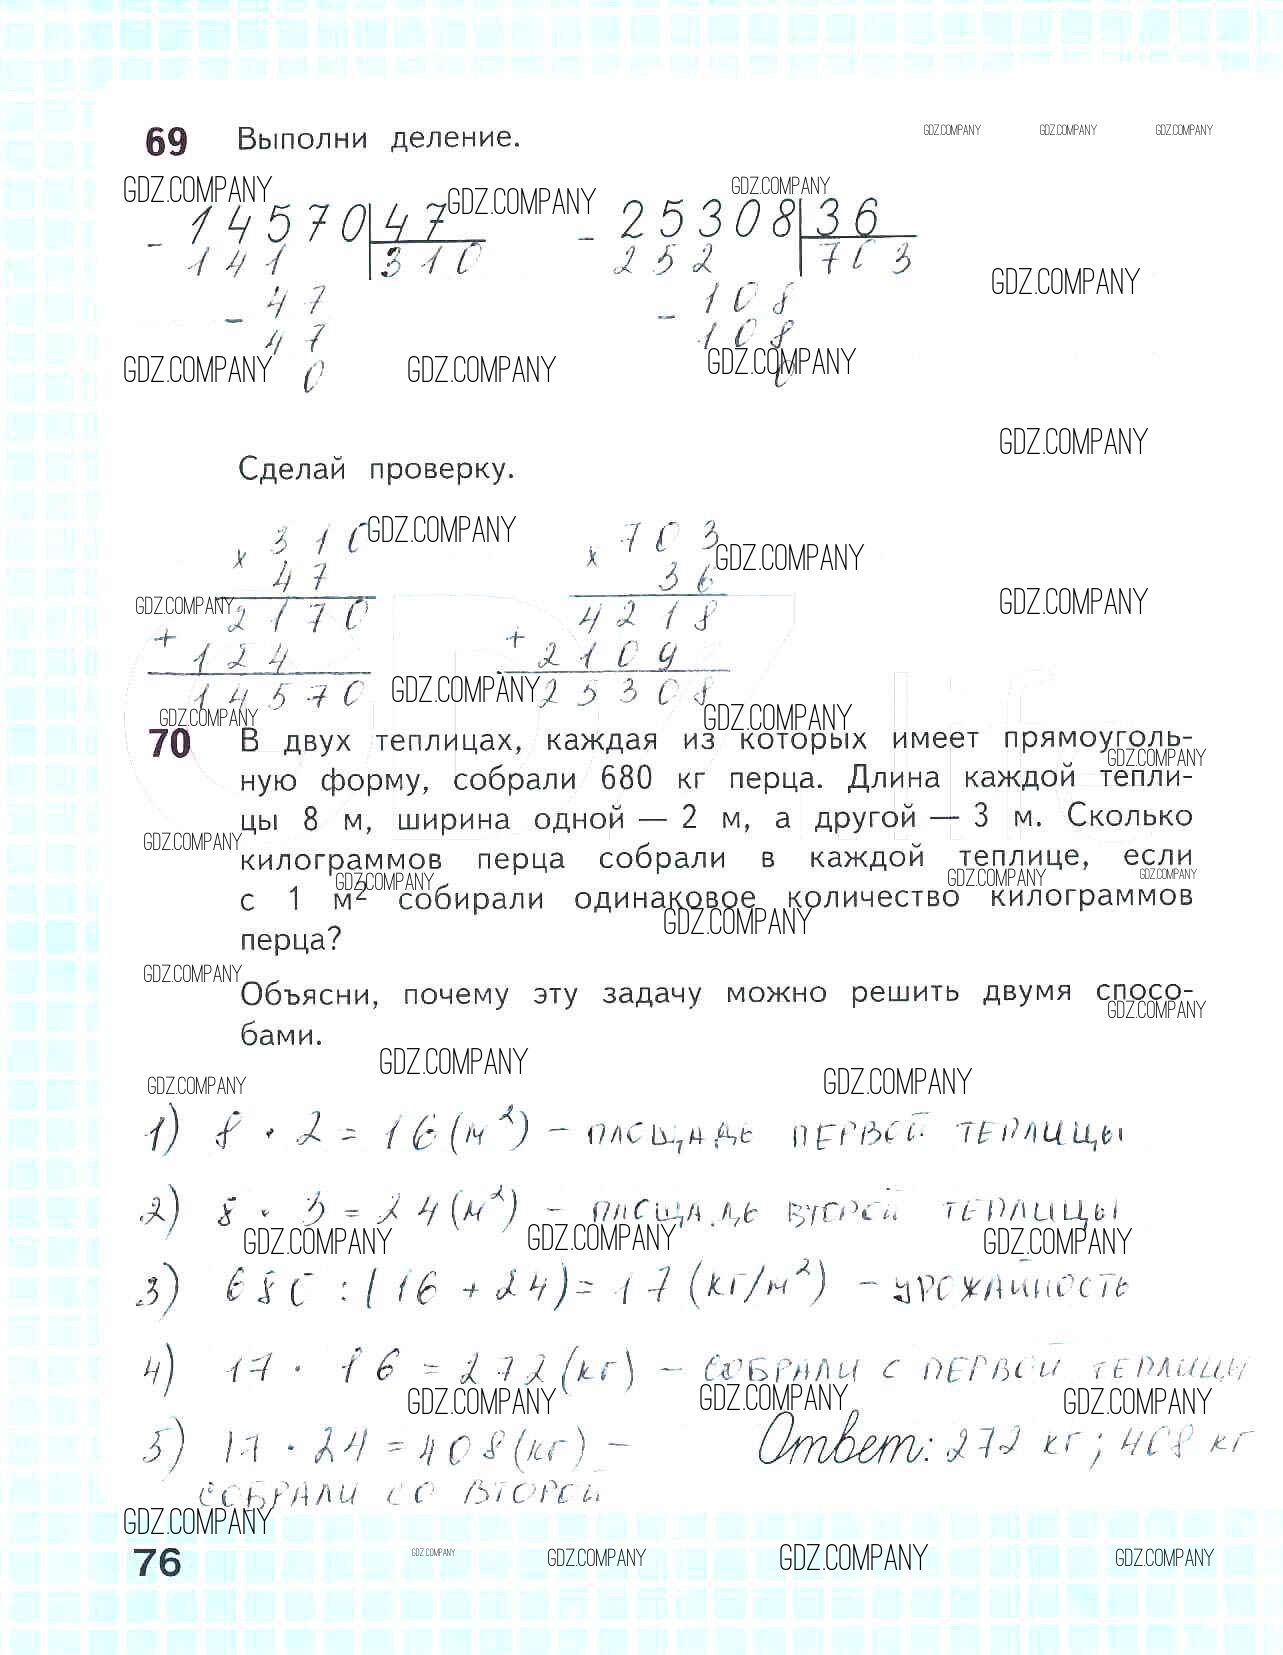 69 Выполни деление.
GDZ.COMPANY GDZ.COMPANY GDZ.COMPANY
GDZ.COMPANY GDZ.COMPANY GDZ.COMPANY
- 14570 47 - 25308 36
141 310 252 703
- 47 - 108 GDZ.COMPANY
47 108
GDZ.COMPANY 0 GDZ.COMPANY GDZ.COMPANY 0
GDZ.COMPANY
Сделай проверку.
× 310 GDZ.COMPANY × 703 GDZ.COMPANY
47 36
GDZ.COMPANY 2170 4218 GDZ.COMPANY
+ 124 + 2109
14570 GDZ.COMPANY 25308
GDZ.COMPANY GDZ.COMPANY
70 В двух теплицах, каждая из которых имеет прямоуголь-
GDZ.COMPANY
ную форму, собрали 680 кг перца. Длина каждой тепли-
цы 8 м, ширина одной — 2 м, а другой — 3 м. Сколько
GDZ.COMPANY
килограммов перца собрали в каждой теплице, если
GDZ.COMPANY GDZ.COMPANY GDZ.COMPANY
с 1 м² собирали одинаковое количество килограммов
GDZ.COMPANY
перца?
GDZ.COMPANY
Объясни, почему эту задачу можно решить двумя спосо-
GDZ.COMPANY
бами.
GDZ.COMPANY
GDZ.COMPANY GDZ.COMPANY
1) 8 · 2 = 16 (м²) – площадь первой теплицы
2) 8 · 3 = 24 (м²) – площадь второй теплицы
GDZ.COMPANY GDZ.COMPANY GDZ.COMPANY
3) 680 : (16 + 24) = 17 (кг/м²) – урожайность
4) 17 · 16 = 272 (кг) – собрали с первой теплицы
GDZ.COMPANY GDZ.COMPANY GDZ.COMPANY
5) 17 · 24 = 408 (кг) – Ответ: 272 кг; 408 кг
собрали со второй
GDZ.COMPANY
76 GDZ.COMPANY GDZ.COMPANY GDZ.COMPANY GDZ.COMPANY